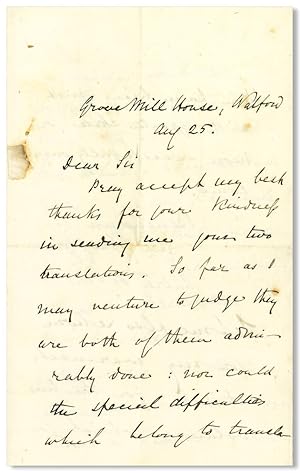 Grove Mill House, Watford
Aug 25.
Dear Sir
Pray accept my best
thanks for your kindness
in sending me your two
translations. So far as I
may venture to judge they
are both of them admi-
rably done: nor could
the special difficulties
which belong to transla